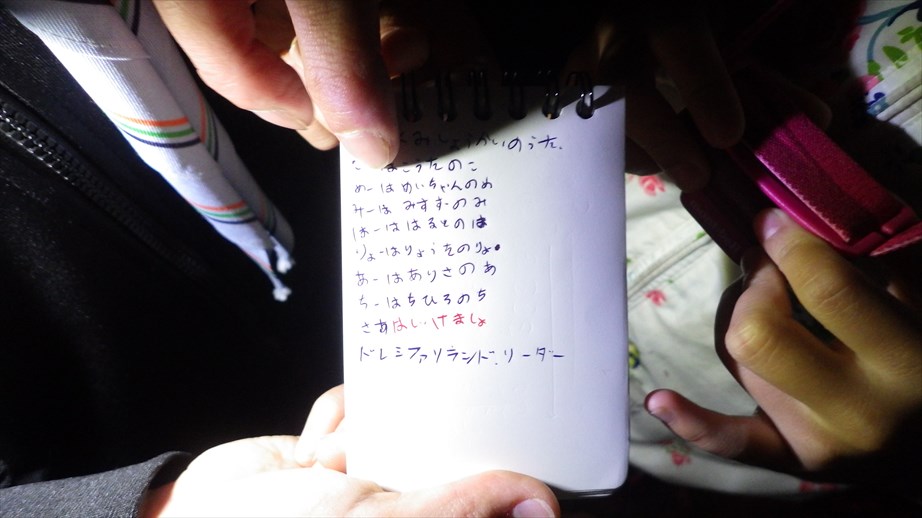 みしょうかいのうた。
こーはこうたのこ
めーはめいちゃんのめ
みーはみすずのみ
はーははるとのは
りょーはりょうたのりょ。
あーはありさのあ
ちーはちひろのち
さあはじけましょ
ドレミファソランド.リーダー